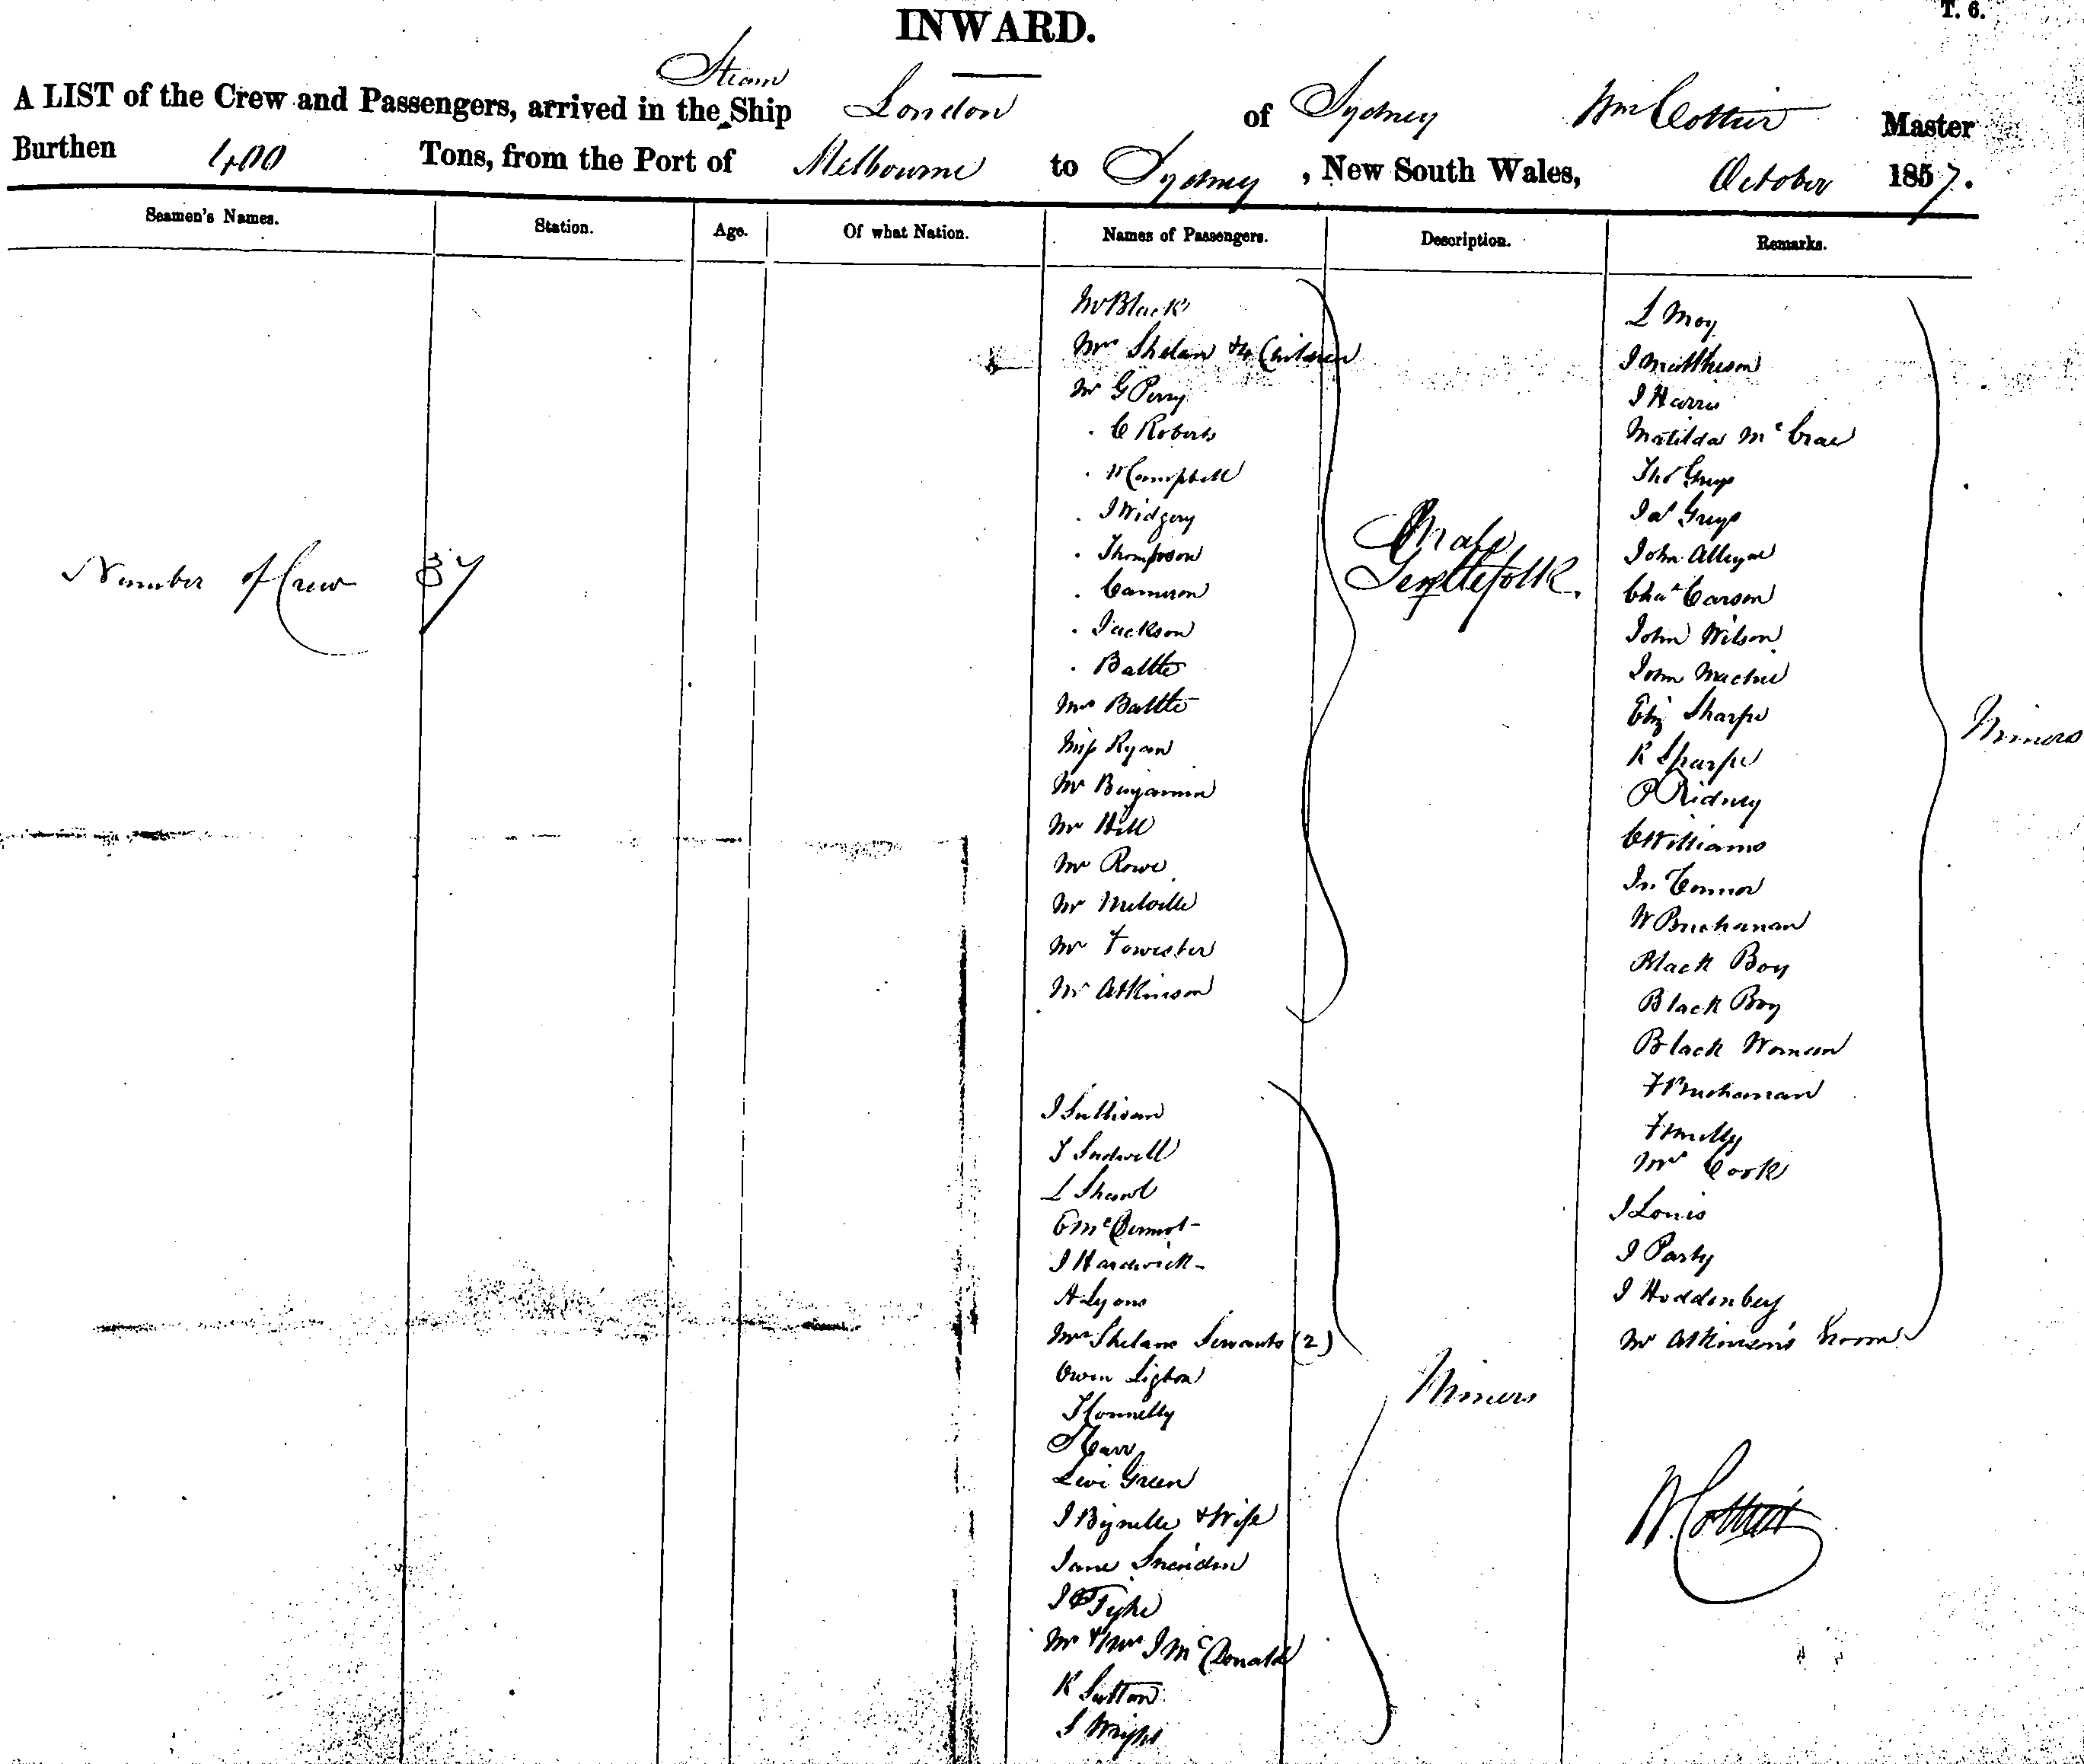 T. 6.
INWARD.
Steam
A LIST of the Crew and Passengers, arrived in the Ship London of Sydney Wm Cottier Master
Burthen 400 Tons, from the Port of Melbourne to Sydney, New South Wales, October 1857.
Seamen's Names. Station. Age. Of what Nation. Names of Passengers. Description. Remarks.
Number of Crew 37
Mr Black
Mrs Shelan & 4 Children
Mr G Perry
. C Roberts
. W Campbell
. J Widgery
. Thompson
. Cameron
. Jackson
. Battle
Mrs Battle
Miss Ryan
Mr Benjamin
Mr Hill
Mr Rowe
Mr Melville
Mr Forrester
Mr Atkinson
Gentlefolk.
J Sullivan
L Shawl
E McDermot
J Hardwick
A Lyons
Mrs Shelans Servants (2)
Owen
J Connelly
Carr
Levi Green
J & Wife
Jane
J Tighe
Mr & Mrs J McDonald
R Sutton
J Wright
Miners
L Moy
J Mattheson
J Harris
Matilda McCrae
Thos Greys
Jas Greys
John Alleyne
Chas Carson
John Wilson
John
Eliz Sharpe
R Sharpe
P Ridney
C Williams
Jn Connor
W Buchanan
Black Boy
Black Boy
Black Woman
F Buchanan
Mrs Cook
J Louis
J Party
J Hoddenbey
Mr Atkinson's Groom
Miners
W. Cottier